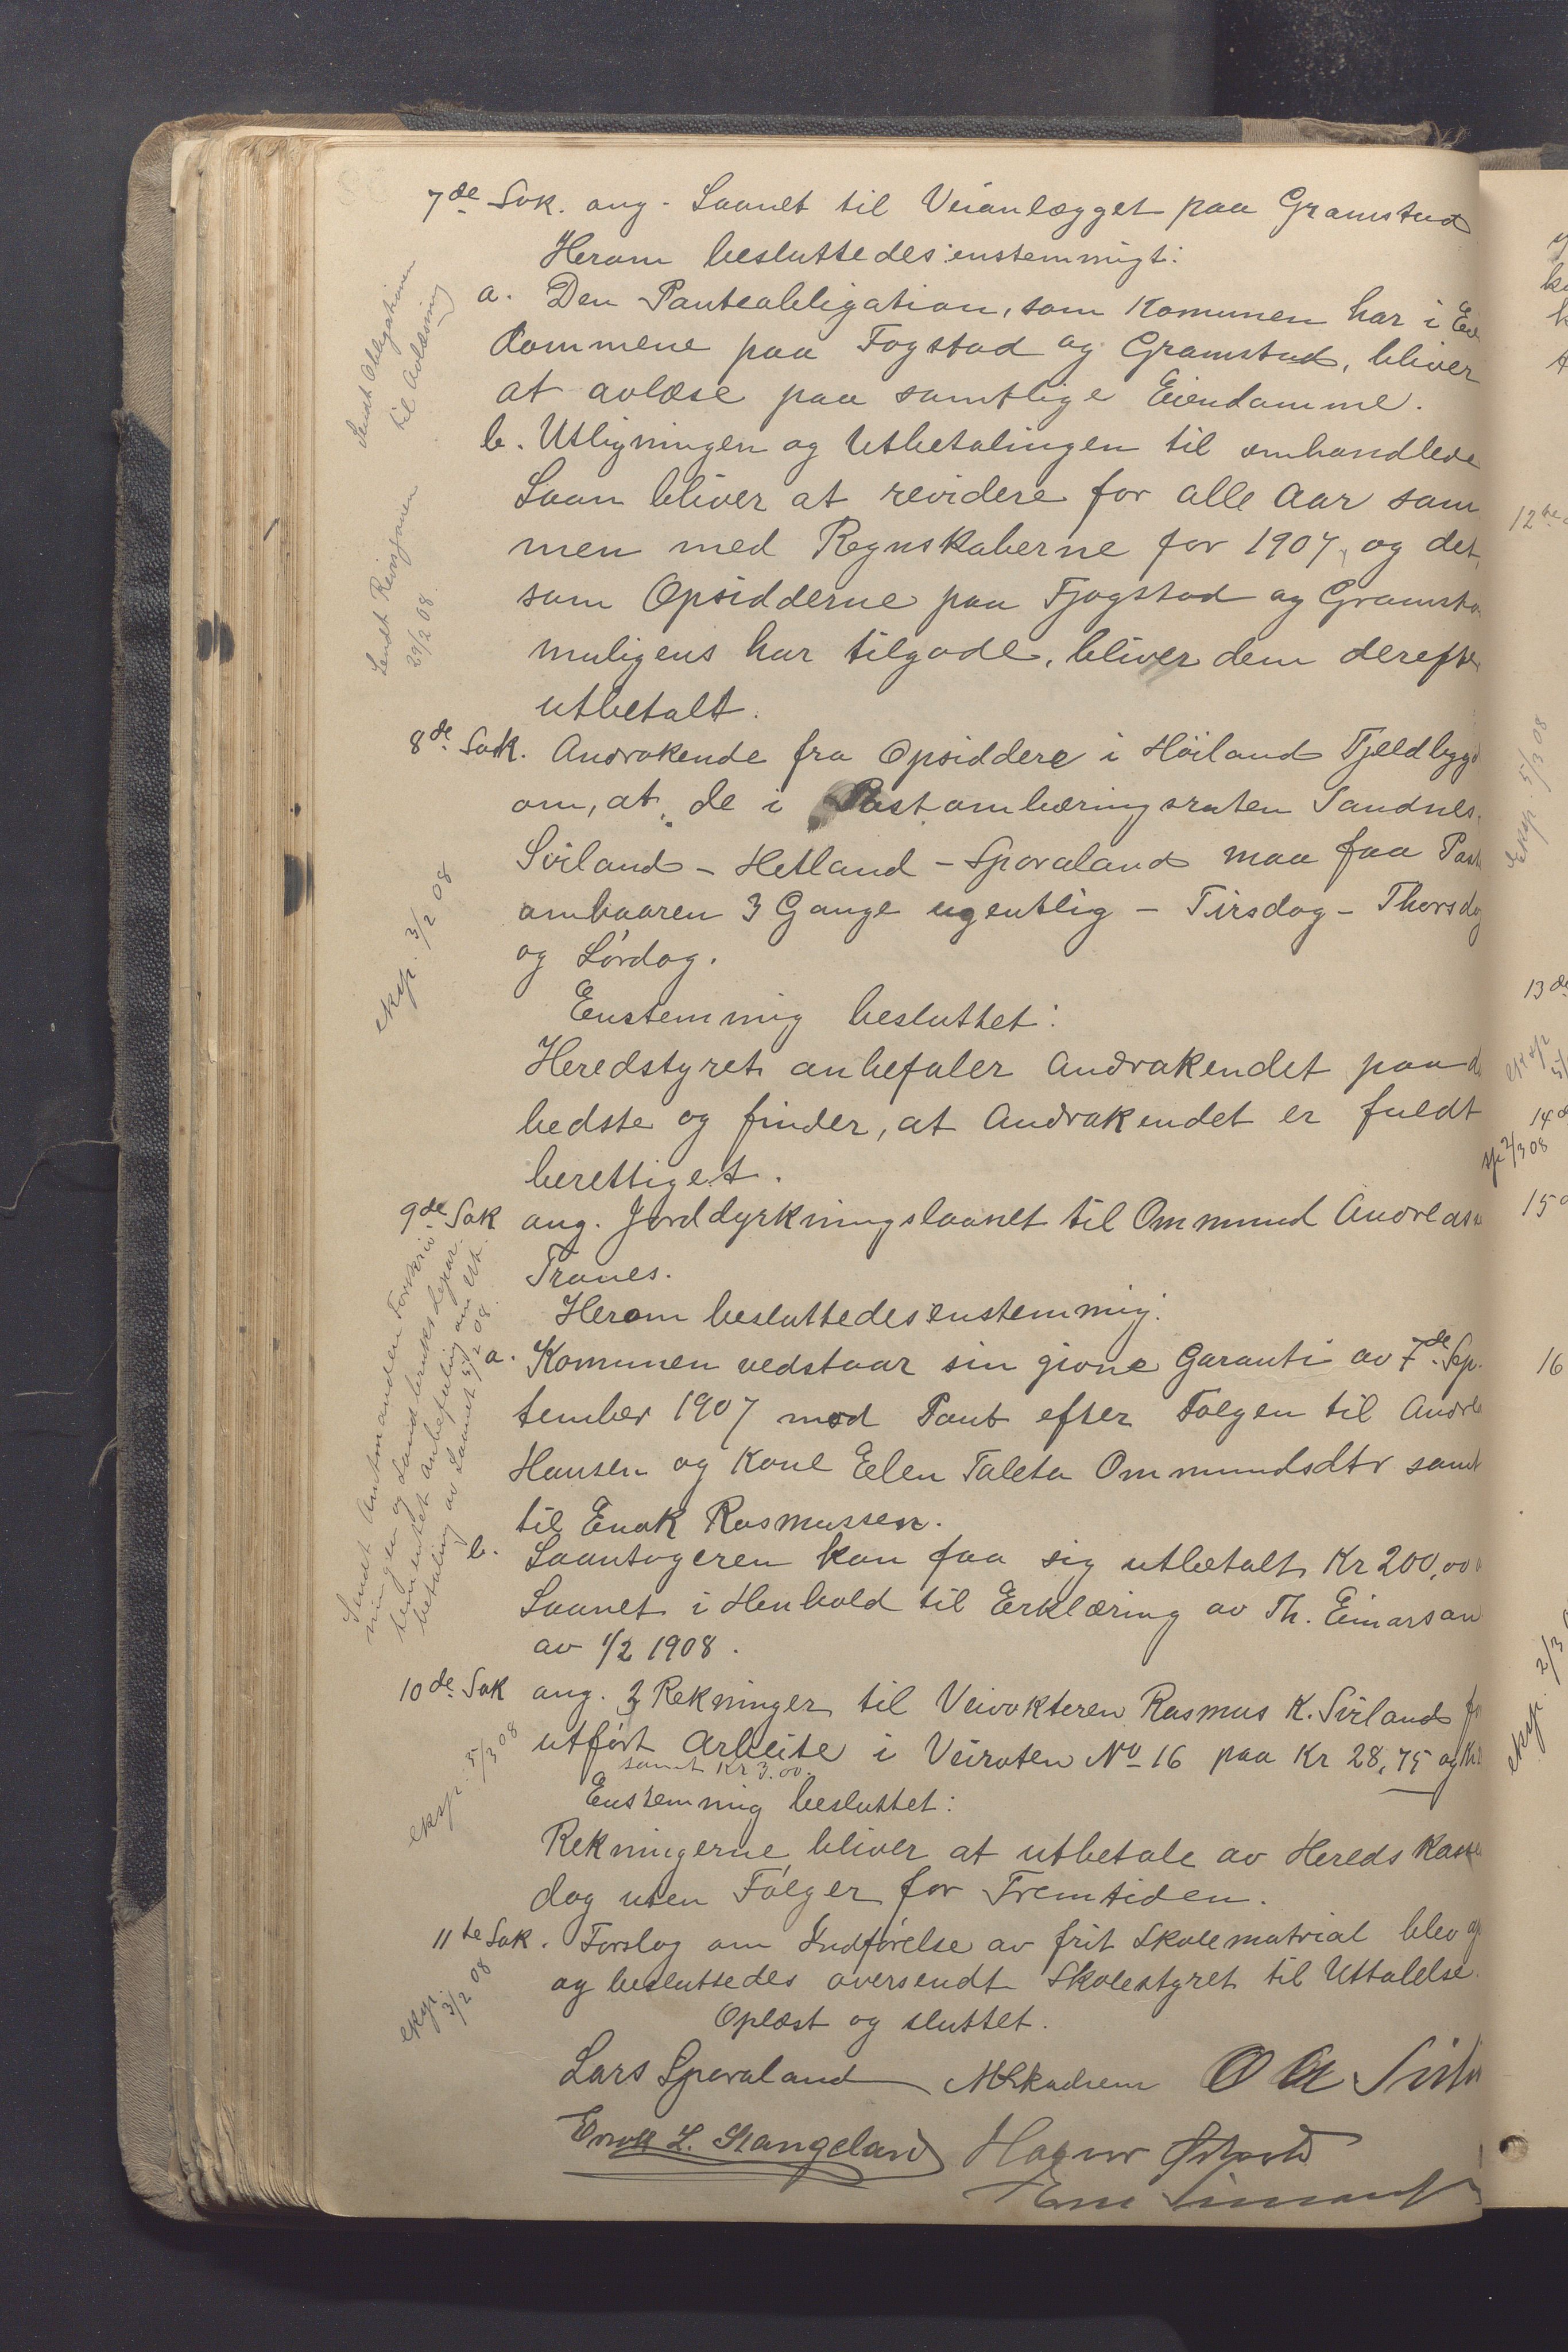 7de Sak. ang. Laanet til Veianlægget paa Gramstad
Herom besluttedes enstemmigt:
a. Den Panteobligation, som Komunen har i Ei
dommene paa Fogstad og Gramstad, bliver
at avlæse paa samtlige Eiendomme.
Sendt Obligationen
til Avlæsning
b. Utligningen og Utbetalingen til omhandlede
Laan bliver at revidere for alle Aar sam
men med Regnskaberne for 1907, og det,
som Opsidderne paa Fjogstad og Gramsta
muligens har tilgode, bliver dem derefter
utbetalt.
Sendt Revisjonen
29/2 08.
8de Sak. Andrakende fra Opsiddere i Höiland Fjeldbygd
om, at de i Postombæringsruten Sandnes
Sviland - Hetland - Sporaland maa faa Post
ombaaren 3 Gange ugentlig - Tirsdag - Thorsdag
og Lördag.
eksp. 3/2 08
Enstemmig besluttet:
Heredstyret anbefaler Andrakendet paa d
bedste og finder, at Andrakendet er fuldt
berettiget.
9de Sak ang. Jorddyrkningslaanet til Ommund Andreas
Tranes.
Herom besluttedes enstemmig:
a. Komunen vedstaar sin givne Garanti av 7de Sep.
tember 1907 mod Pant efter Følgen til Andre
Hansen og Kone Elen Taleta Ommundsdtr samt
til Enok Rasmussen.
b. Laantageren kan faa sig utbetalt Kr 200,00
Laanet i Henhold til Erklæring av Th. Einarsan
av 1/2 1908.
Sendt Amtmanden Forskriv
ningen og Landbruksdepar
tementet anbefaling om Ut
betaling av Laanet 5/2 08.
10de Sak ang. 3 Rekninger til Veivokteren Rasmus K. Sviland f
utført Arbeite i Veiroten No 16 paa Kr 28,75 og Kr
samt Kr 3.00.
Enstemmig besluttet:
Rekningerne bliver at utbetale av Hereds Kasse
dog uten Fölger for Fremtiden.
eksp. 5/3 08
11te Sak. Forslag om Indförelse av frit Skolematrial blev
og besluttedes oversendt Skolestyret til Uttalelse.
eksp. 3/2 08
Oplæst og sluttet.
Lars Sporaland O A
Enok L. Stangeland
12te
eksp. 5/3 08
13de
eksp
14d
2/3 08
15d
16
eksp. 2/3